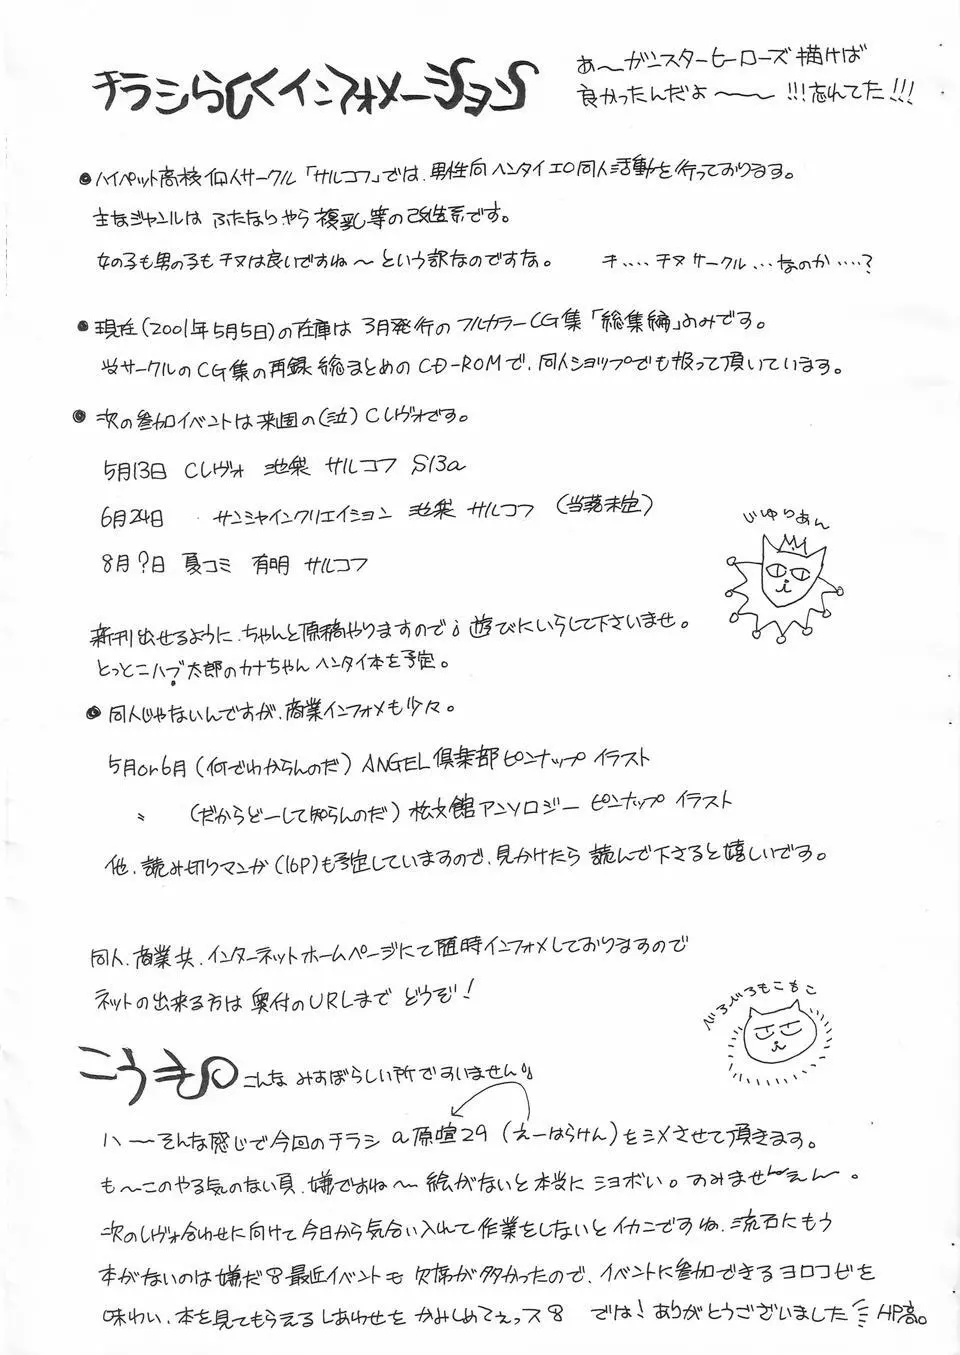 チラシらしくインフォメーション
あ〜ガニスターヒーローズ描けば
良かったんだよ〜〜 !!!忘れてた!!!
●ハイペット高校個人サークル「サルコフ」では、男性向ヘンタイエロ同人活動を行っております。
主なジャンルは ふたなりやら複乳等の改造系です。
女の子も男の子もチヌは良いですね〜という訳なのですな。 チ....チヌサークル...なのか....?
●現在(2001年5月5日)の在庫は3月発行のフルカラーCG集「総集編」のみです。
当サークルのCG集の再録総まとめのCD-ROMで、同人ショップでも扱って頂いています。
●次の参加イベントは来週の(泣)Cレヴォです。
5月13日 Cレヴォ 池袋 サルコフ S13a
6月24日 サンシャインクリエイション 池袋 サルコフ (当落未定)
8月?日 夏コミ 有明 サルコフ
じゆりあん
新刊出せるように、ちゃんと原稿やりますので 遊びにいらして下さいませ。
とっとこハブ太郎のカナちゃん ヘンタイ本を予定。
●同人じゃないんですが、商業インフォメも少々。
5月or6月(何でわからんのだ)ANGEL倶楽部ピンナップ イラスト
〃 (だからどーして知らんのだ)松文館アンソロジー ピンナップ イラスト
他、読み切りマンガ(16P)も予定していますので、見かけたら 読んで下さると嬉しいです。
同人、商業共、インターネットホームページにて随時インフォメしておりますので
ネットの出来る方は奥付のURLまで どうぞ!
べろべろもこもこ
こうき こんな みすぼらしい所ですいません
ハ〜そんな感じで今回のチラシ a原喧29(えーはらけん)をシメさせて頂きます。
も〜このやる気のない頁、嫌ですね〜 絵がないと本当に ショボい。すみませ〜えん〜。
次のレヴォ合わせに向けて今日から気合い入れて作業をしないとイカンですね、流石にもう
本がないのは嫌だ 最近イベントも 欠席が多かったので、イベントに参加できるヨロコビを
味わい、本を見てもらえるしあわせを かみしめてぇっス では!ありがとうございました HP高。